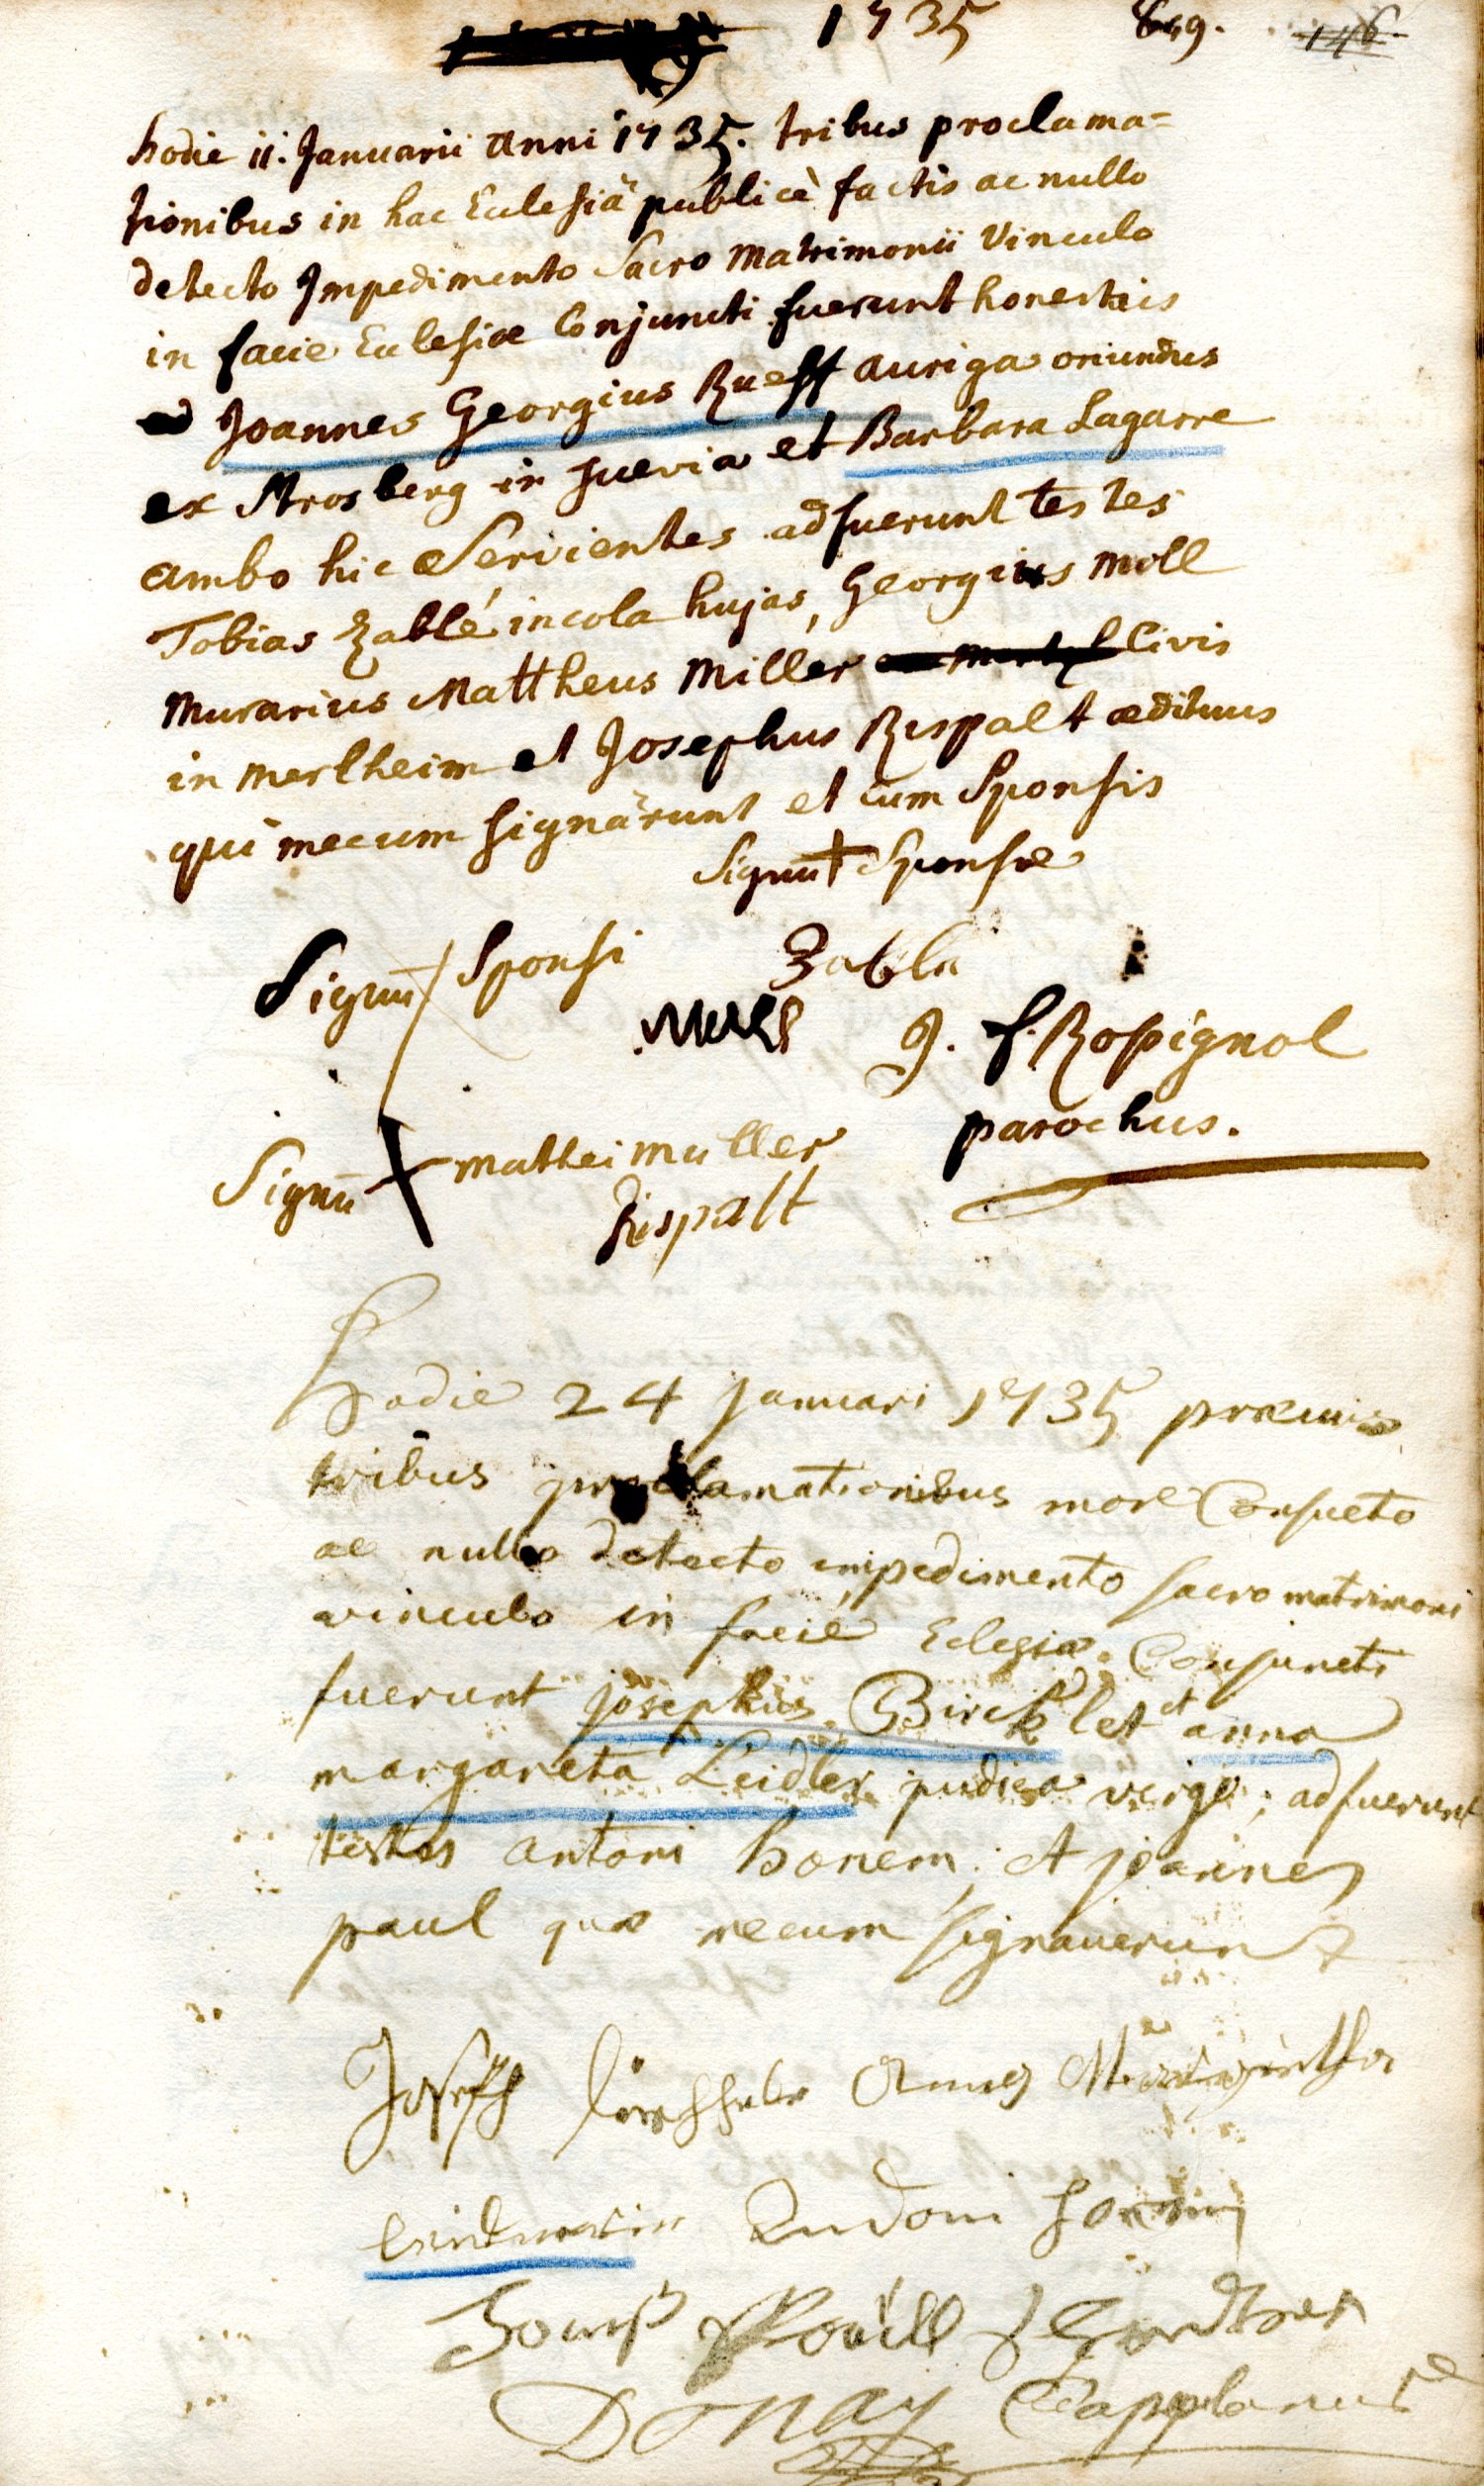 1735 649. 146.
hodie ii. Januarii anni 1735. tribus proclama=
tionibus in hac Eclesiâ publicè factis ac nullo
detecto Impedimento Sacro Matrimonii Vinculo
in facie Eclesiæ Conjuncti fuerunt honestus
Joannes Georgius Rueff auriga oriundus
ex Strosberg in suevia et Barbara Lagarre
ambo hic Servientes adfuerunt testes
Tobias Zablé incola hujas, Georgius Moll
Murarius Mattheus Miller Civis
in Mertheim et Josephus Rispalt ædituus
qui mecum signârunt et cum Sponsis
Signū + Sponsæ
Signū Sponsi Zable
Moll J. f. Rossignol
parochus.
Signū + matthei muller
Rispalt
Hodie 24 Januari 1735 præmis
tribus proclamationibus more Consueto
ac nullo detecto impedimento sacro matrimoni
vinculo in facie Eclesiæ Conjuncti
fuerunt josephus Bircklet et anna
margareta Leidler pudica virgo; adfuerunt
testes antoni honem; et joannes
paul quæ mecum signauerunt
Joseph Anna
Andoni
Donay Capplanus